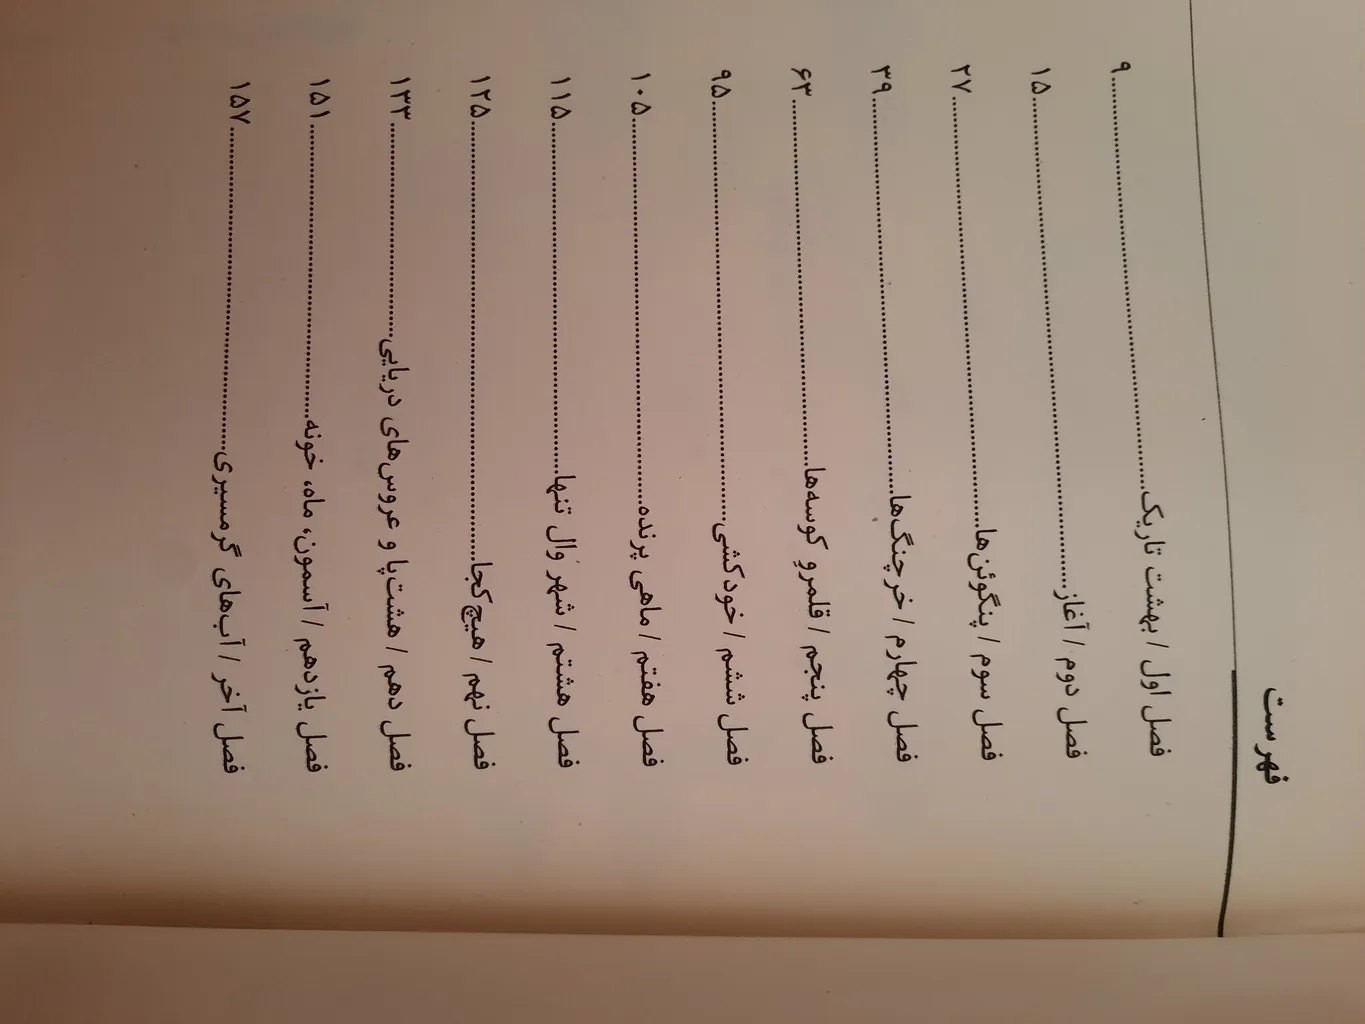 فهرست
فصل اول / بهشت تاریک..........۹
فصل دوم / آغاز..........۱۵
فصل سوم / پنگوئن‌ها..........۲۷
فصل چهارم / خرچنگ‌ها..........۳۹
فصل پنجم / قلمروِ کوسه‌ها..........۶۳
فصل ششم / خودکشی..........۹۵
فصل هفتم / ماهی پرنده..........۱۰۵
فصل هشتم / شهر وَال تنها..........۱۱۵
فصل نهم / هیچ‌کجا..........۱۲۵
فصل دهم / هشت‌پا و عروس‌های دریایی..........۱۳۳
فصل یازدهم / آسمون، ماه، خونه..........۱۵۱
فصل آخر / آب‌های گرمسیری..........۱۵۷